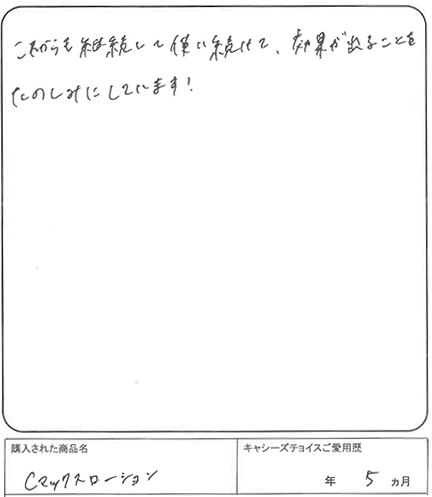 これからも継続して使い続けて、効果が出ることを
たのしみにしています!
購入された商品名
キャシーズチョイスご愛用歴
Cマックスローション
年 5 ヵ月